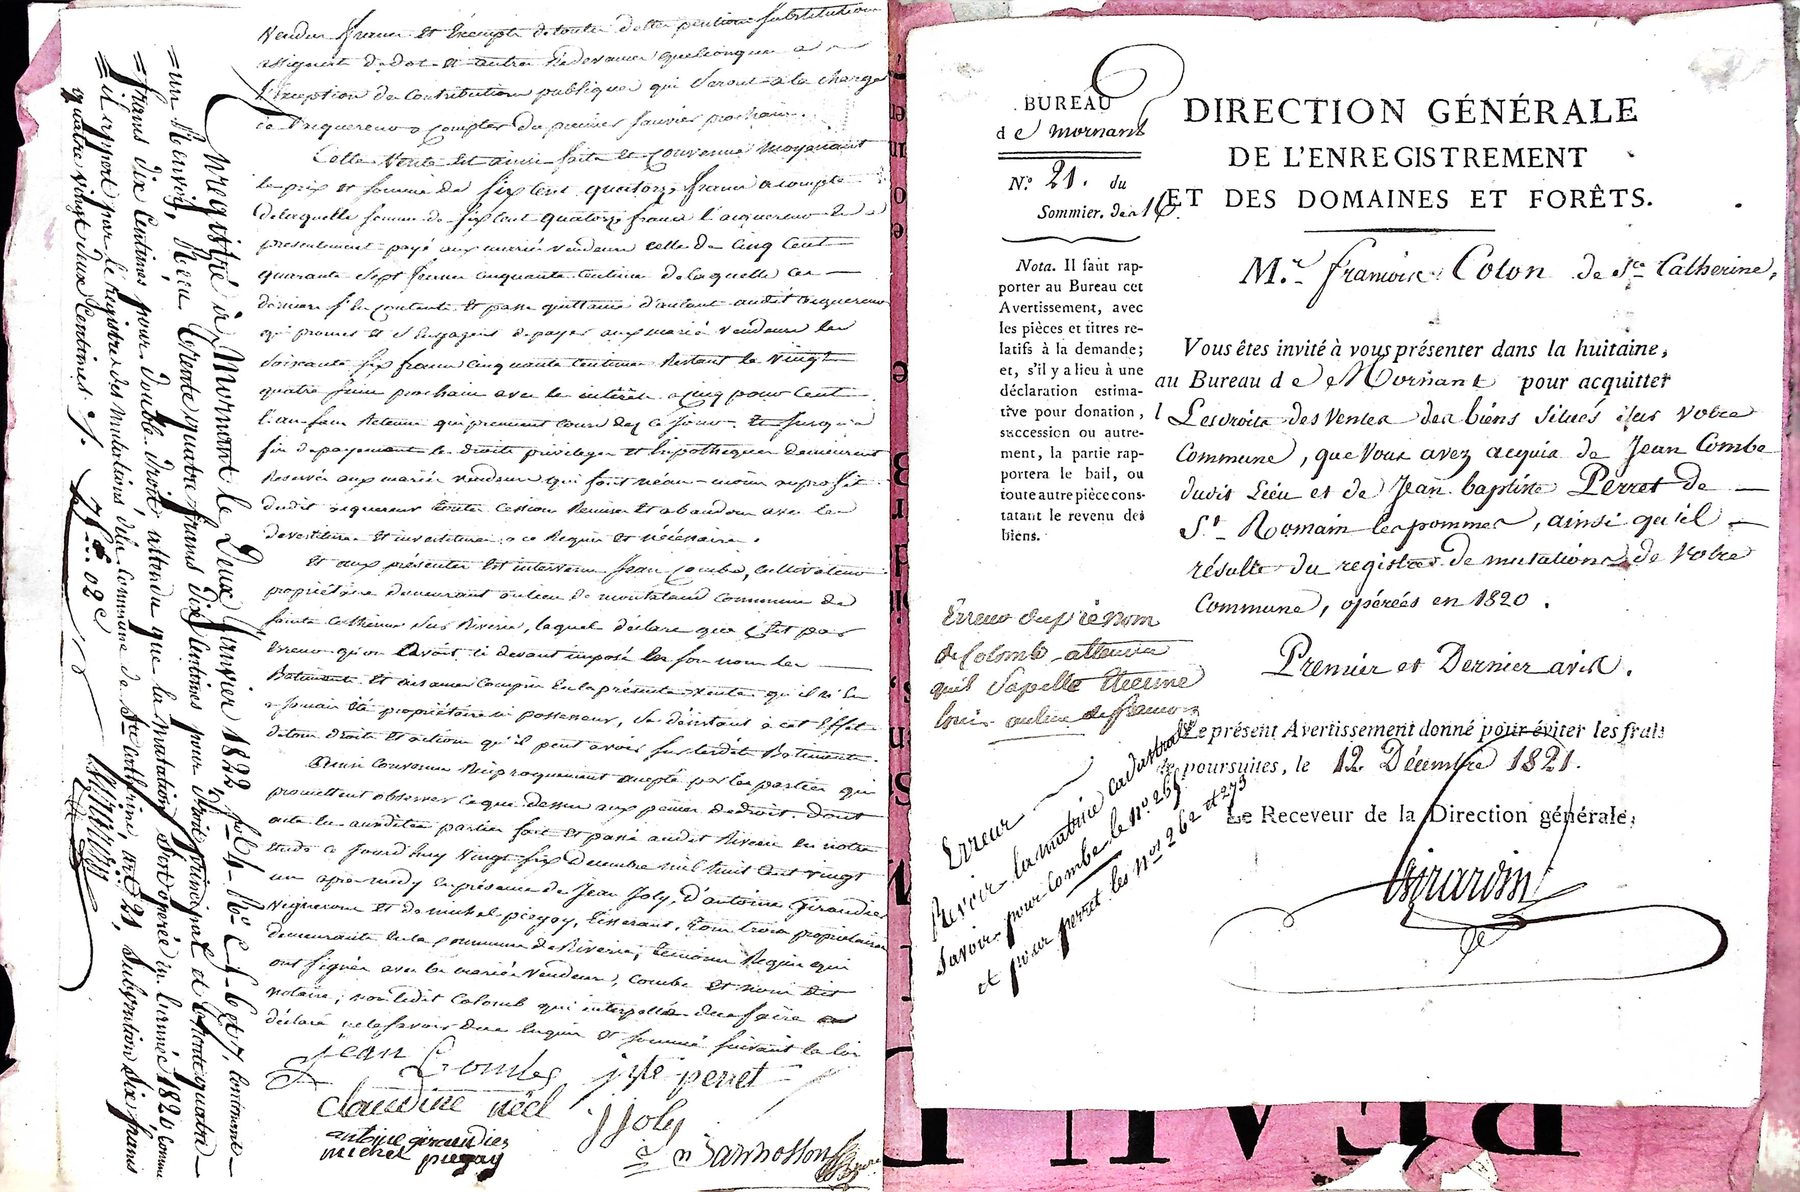 vendu franc et exempt de toute dette pention substitution
assignat de dot et autres Redevances quelconques a
l'exception des Contributions publiques qui seront a la charge
de l'acquereur a compter du premier janvier prochain.
Cette vente est ainsi faite et convenue moyennant
le prix et somme de six cent quatorze francs acompte
de laquelle somme de six cent quatorze francs l'acquereur a
presentement payé aux mariés vendeurs celle de cinq cent
quarante sept francs cinquante centimes de laquelle ces
derniers se contente et passe quittance d'autant audit acquereur
qui promet et s'engage de payer aux mariés vendeurs les
soixante six francs cinquante centimes Restant le vingt
quatre juin prochain avec les intérêts a cinq pour cent
l'an sans Retenue qui prennent cours dez ce jour. Et jusqu'a
fin de payement les droits privileges et hipotheques demeurent
Reservés aux mariés vendeurs qui font neanmoins au profit
dudit acquereur toutes cessions Remises et abandon avec les
devestiture et investiture a ce Requis et nécéssaire.
Et aux présentes est intervenu Jean Combe, cultivateur
propriétaire demeurant au lieu de montataud commune de
sainte Catherine sur Riverie, lequel déclare que c'est par
Erreur qu'on l'avait ci devant imposé sous son nom les
Batiments et aisances compris en la présente vente qu'il n'en
a jamais été propriétaire ni possesseur, se désistant a cet effet
de tous droits et actions qu'il peut avoir sur lesdits Batiments.
Ainsi convenu Réciproquement accepté par les parties qui
promettent observer ce que dessus aux peines de droit. dont
acte lu auxdites parties fait et passé audit Riverie en notre
étude ce jourd'huy vingt six Decembre mil huit cent vingt
un apres-midy En présence de Jean Joly, d'antoine Giraudier
vigneron et de michel piegay, tisserant, tous trois propriétaires
demeurants en la commune de Riverie, temoins Requis qui
ont signés avec les mariés vendeurs, Combe et nous dit
notaire, non ledit Colomb qui interpellé de ce faire a
déclaré ne le savoir de ce enquis et sommé suivant la loi
jean Combe jste perret
claudine néel jjoly
antoine giraudier
michel piegay
Enregistré à Mornant le Deux Janvier 1822, contenant
un Renvoi, Reçu trente quatre francs dix Centimes pour Droit principal et trente quatre
francs dix Centimes pour double droit attendu que la mutation s'est opérée en l'année 1820 comme
il appert par le Registre des mutations de la Commune de Ste catherine, art. 21, Subvention Six francs
quatre vingt deux Centimes
75f.. 02c
BUREAU
de Mornant
N.º 21. du
Sommier. des
Nota. Il faut rap-
porter au Bureau cet
Avertissement, avec
les pièces et titres re-
latifs à la demande;
et, s'il y a lieu à une
déclaration estima-
tive pour donation,
succession ou autre-
ment, la partie rap-
portera le bail, ou
toute autre pièce cons-
tatant le revenu des
biens.
DIRECTION GÉNÉRALE
DE L'ENREGISTREMENT
ET DES DOMAINES ET FORÊTS.
M.r francois Colon de Ste Catherine,
Vous êtes invité à vous présenter dans la huitaine,
au Bureau de Mornant pour acquitter
Les droits des ventes des biens situés sur votre
Commune, que vous avez acquis de Jean Combe
dudit Lieu et de Jean baptiste Perret de
St. Romain les pommes, ainsi qu'il
résulte du registre de mutations de votre
Commune, opérées en 1820.
Premier et Dernier avis.
Le présent Avertissement donné pour éviter les frais
de poursuites, le 12 Décembre 1821.
Le Receveur de la Direction générale,
Girardin
Erreur du prénom
de Colomb attendu
qu'il s'apelle Etienne
louis au lieu de francois
Erreur
Revoir la matrice cadastrale
savoir pour Combe le nº 265
et pour perret les nos 262 et 273